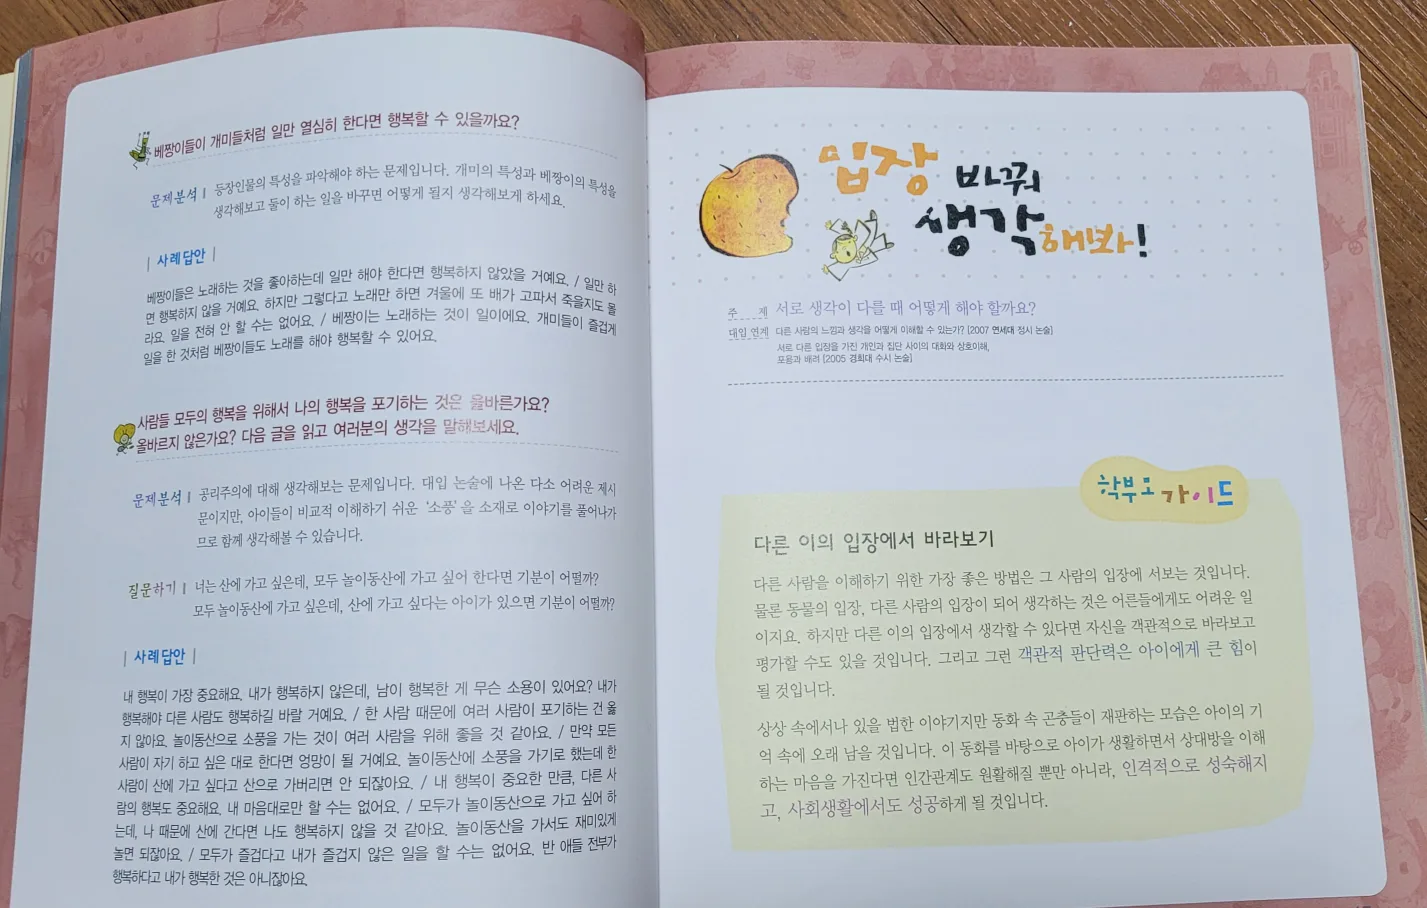 베짱이들이 개미들처럼 일만 열심히 한다면 행복할 수 있을까요?
문제분석 | 등장인물의 특성을 파악해야 하는 문제입니다. 개미의 특성과 베짱이의 특성을
생각해보고 둘이 하는 일을 바꾸면 어떻게 될지 생각해보게 하세요.
| 사례답안 |
베짱이들은 노래하는 것을 좋아하는데 일만 해야 한다면 행복하지 않았을 거예요. / 일만 하
면 행복하지 않을 거예요. 하지만 그렇다고 노래만 하면 겨울에 또 배가 고파서 죽을지도 몰
라요. 일을 전혀 안 할 수는 없어요. / 베짱이는 노래하는 것이 일이에요. 개미들이 즐겁게
일을 한 것처럼 베짱이들도 노래를 해야 행복할 수 있어요.
사람들 모두의 행복을 위해서 나의 행복을 포기하는 것은 올바른가요?
올바르지 않은가요? 다음 글을 읽고 여러분의 생각을 말해보세요.
문제분석 | 공리주의에 대해 생각해보는 문제입니다. 대입 논술에 나온 다소 어려운 제시
문이지만, 아이들이 비교적 이해하기 쉬운 '소풍'을 소재로 이야기를 풀어나가
므로 함께 생각해볼 수 있습니다.
질문하기 | 너는 산에 가고 싶은데, 모두 놀이동산에 가고 싶어 한다면 기분이 어떨까?
모두 놀이동산에 가고 싶은데, 산에 가고 싶다는 아이가 있으면 기분이 어떨까?
| 사례답안 |
내 행복이 가장 중요해요. 내가 행복하지 않은데, 남이 행복한 게 무슨 소용이 있어요? 내가
행복해야 다른 사람도 행복하길 바랄 거예요. / 한 사람 때문에 여러 사람이 포기하는 건 옳
지 않아요. 놀이동산으로 소풍을 가는 것이 여러 사람을 위해 좋을 것 같아요. / 만약 모든
사람이 자기 하고 싶은 대로 한다면 엉망이 될 거예요. 놀이동산에 소풍을 가기로 했는데 한
사람이 산에 가고 싶다고 산으로 가버리면 안 되잖아요. / 내 행복이 중요한 만큼, 다른 사
람의 행복도 중요해요. 내 마음대로만 할 수는 없어요. / 모두가 놀이동산으로 가고 싶어 하
는데, 나 때문에 산에 간다면 나도 행복하지 않을 것 같아요. 놀이동산을 가서도 재미있게
놀면 되잖아요. / 모두가 즐겁다고 내가 즐겁지 않은 일을 할 수는 없어요. 반 애들 전부가
행복하다고 내가 행복한 것은 아니잖아요.
입장 바꿔
생각해봐!
주 제 서로 생각이 다를 때 어떻게 해야 할까요?
대입 연계 다른 사람의 느낌과 생각을 어떻게 이해할 수 있는가? [2007 연세대 정시 논술]
서로 다른 입장을 가진 개인과 집단 사이의 대화와 상호이해,
포용과 배려 [2005 경희대 수시 논술]
학부모 가이드
다른 이의 입장에서 바라보기
다른 사람을 이해하기 위한 가장 좋은 방법은 그 사람의 입장에 서보는 것입니다.
물론 동물의 입장, 다른 사람의 입장이 되어 생각하는 것은 어른들에게도 어려운 일
이지요. 하지만 다른 이의 입장에서 생각할 수 있다면 자신을 객관적으로 바라보고
평가할 수도 있을 것입니다. 그리고 그런 객관적 판단력은 아이에게 큰 힘이
될 것입니다.
상상 속에서나 있을 법한 이야기지만 동화 속 곤충들이 재판하는 모습은 아이의 기
억 속에 오래 남을 것입니다. 이 동화를 바탕으로 아이가 생활하면서 상대방을 이해
하는 마음을 가진다면 인간관계도 원활해질 뿐만 아니라, 인격적으로 성숙해지
고, 사회생활에서도 성공하게 될 것입니다.